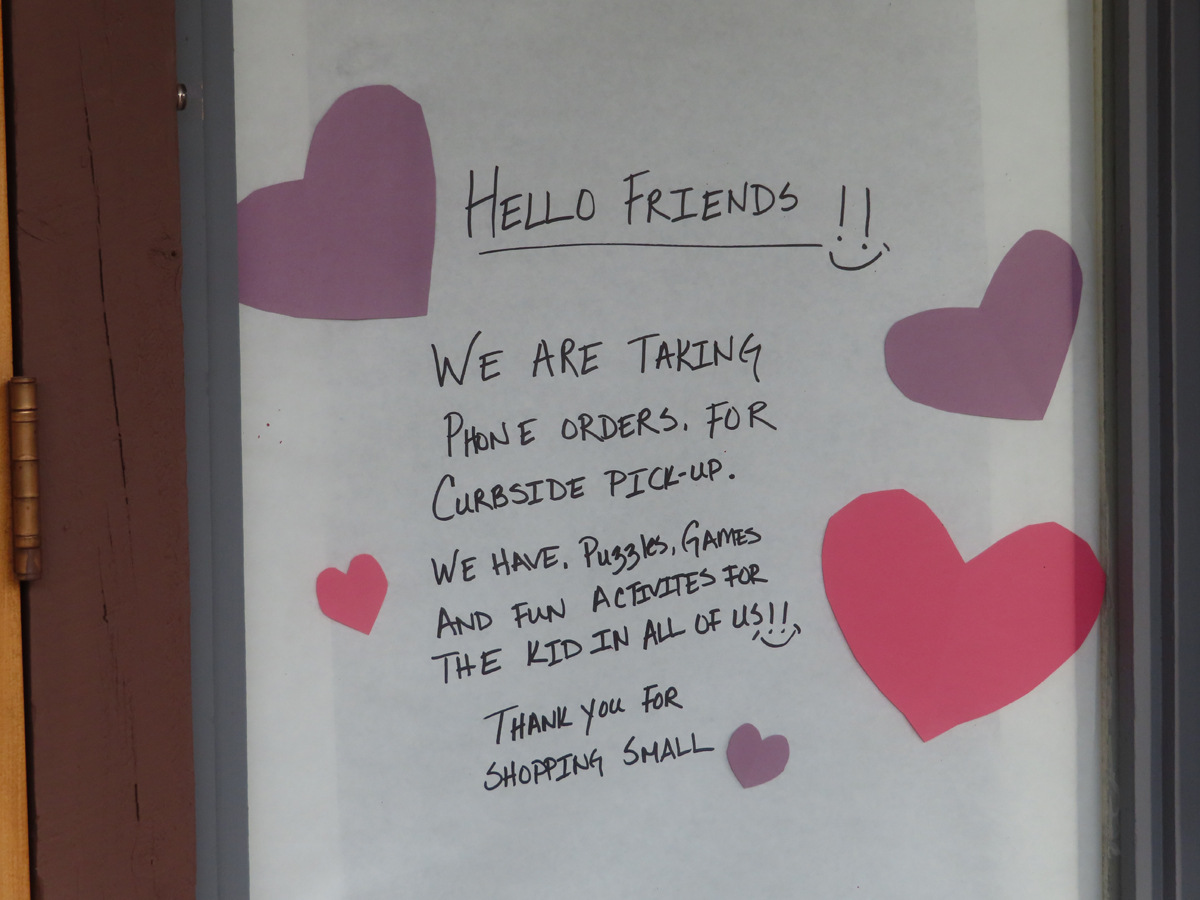 HELLO FRIENDS !!
WE ARE TAKING
PHONE ORDERS. FOR
CURBSIDE PICK-UP.
WE HAVE. Puzzles, GAMES
AND FUN ACTIVITES FOR
THE KID IN ALL OF US!!
THANK YOU FOR
SHOPPING SMALL